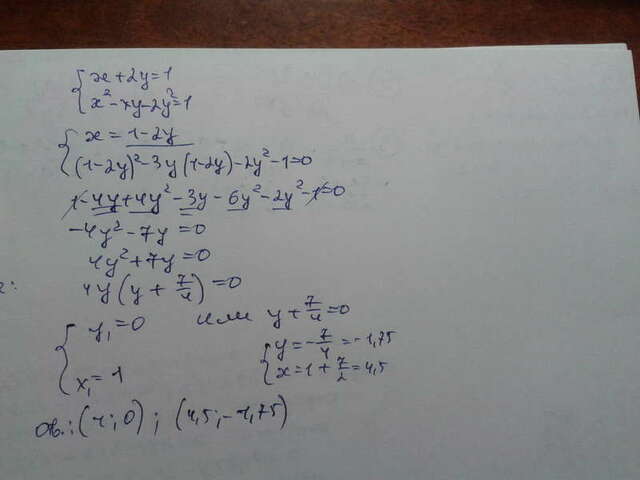 x + 2y = 1
x² - xy - 2y² = 1
x = 1 - 2y
(1-2y)² - 3y(1-2y) - 2y² - 1 = 0
1 - 4y + 4y² - 3y - 6y² - 2y² - 1 = 0
-4y² - 7y = 0
4y² + 7y = 0
4y(y + 7/4) = 0
y₁ = 0 или y + 7/4 = 0
y = -7/4 = -1,75
x₁ = 1
x = 1 + 7/2 = 4,5
Отв.: (1; 0); (4,5; -1,75)